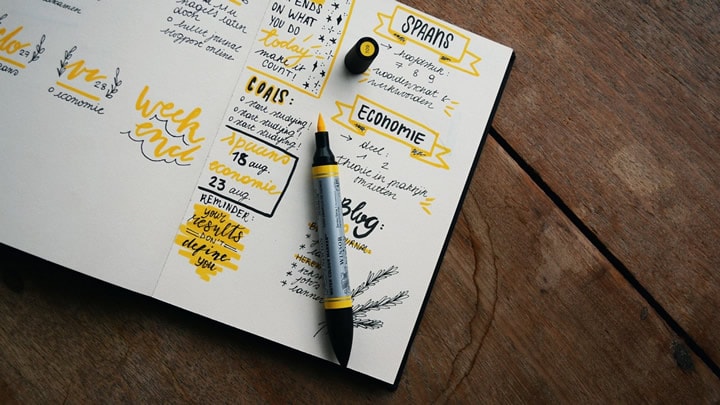 nagels laten
doch
o bullet journal
27
vr
28
o economie
week
end
ENDS
ON WHAT
YOU DO
today:
make it
COUNT!
GOALS:
o start studying!
o start studying!
o start studying!
spaans
18 aug.
economie
23 aug.
REMINDER:
your
results
DON'T
define
you
SPAANS
→ hoofdstuk:
7 8 9
→ woordenschat &
werkwoorden
ECONOMIE
→ deel:
1 2
theorie in praktijk
omzetten
Blog:
WINSOR